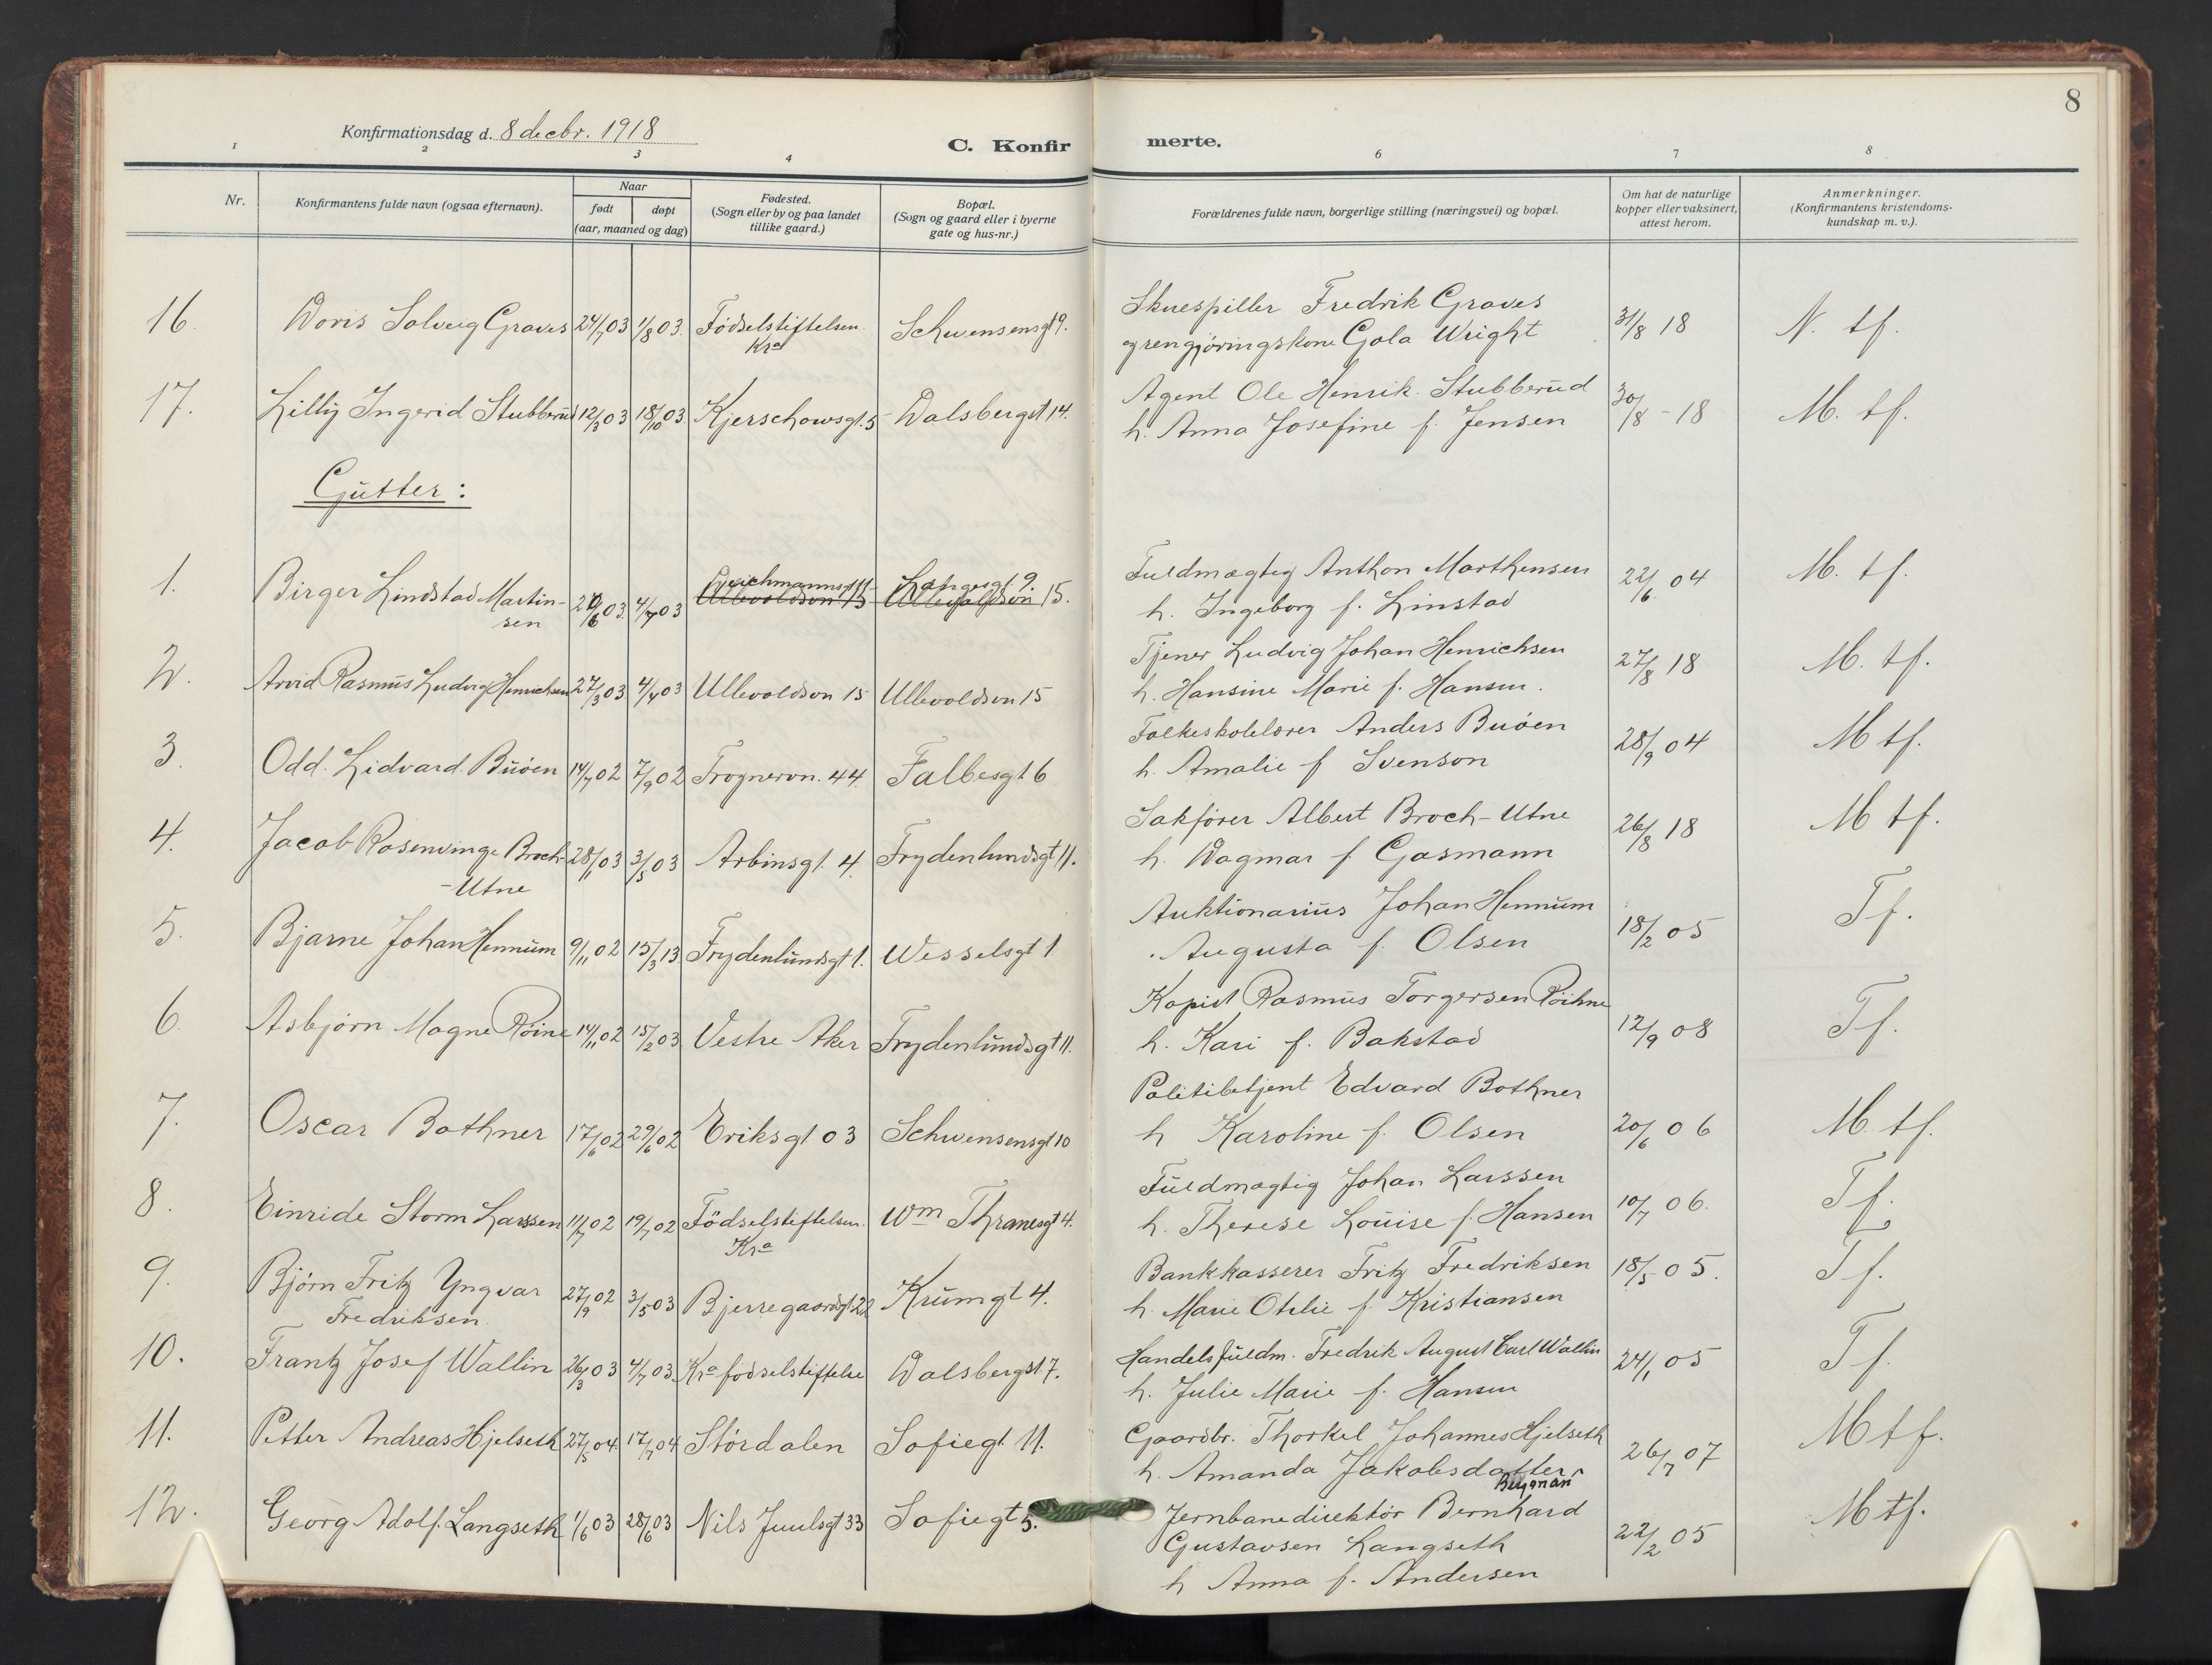 8
Konfirmationsdag d. 8 decbr. 1918
C. Konfir merte.
1 2 3 4 6 7 8
Nr.
Konfirmantens fulde navn (ogsaa efternavn).
Naar
født døpt
(aar, maaned og dag)
Fødested.
(Sogn eller by og paa landet
tillike gaard.)
Bopæl.
(Sogn og gaard eller i byerne
gate og hus-nr.)
Forældrenes fulde navn, borgerlige stilling (næringsvei) og bopæl.
Om hat de naturlige
kopper eller vaksinert,
attest herom.
Anmerkninger.
(Konfirmantens kristendoms-
kundskap m. v.).
16. Doris Solveig Graves 24/7 03 1/8 03. Fødselstiftelsen Schwensensgt 9. Skuespiller Fredrik Graves 31/8 18 N. tf.
Kra og rengjøringskone Gola Wright
17. Lilly Ingerid Stubberud 12/3 03 18/10 03. Kjerschowsgt. 5 Dalsbergst 14. Agent Ole Henrik Stubberud 30/8 - 18 M. tf.
h. Anna Josefine f. Jensen
Gutter:
1. Birger Lindstad Martin- 4/7 03 Ullevoldsvn 15 Ullevoldsvn 15. Fuldmægtig Anthon Marthensen 22/6 04 M. tf.
sen h. Ingeborg f. Linstad
2. Arvid Rasmus Ludvig Henrichsen 27/3 03 4/4 03 Ullevoldsvn 15 Ullevoldsvn 15 Tjener Ludvig Johan Henrichsen 27/8 18 M. tf.
h. Hansine Marie f. Hansen.
3. Odd. Lidvard. Buöen 14/7 02 7/9 02 Frognervn. 44. Falbesgt 6 Folkeskolelærer Anders Buöen 28/9 04 M tf.
h. Amalie f Svenson
4. Jacob Rosenvinge Broch- 28/1 03 3/5 03 Arbinsgt. 4. Frydenlundsgt 11. Sakfører Albert Broch-Utne 26/8 18 M tf.
-Utne h. Dagmar f. Gasmann
5. Bjarne Johan Hennum 9/11 02 15/3 13. Frydenlundsgt 1. Wesselsgt 1 Auktionarius Johan Hennum 18/2 05 Tf.
. Augusta f. Olsen
6. Asbjørn Magne Röine 14/11 02 15/2 03 Vestre Aker Frydenlundsgt 11. Kopist Rasmus Torgersen Röihne 12/9 08 Tf.
h. Kari f. Bakstad
7. Oscar Bothner 17/6 02 29/6 02 Eriksgt 03 Schwensensgt 10 Politibetjent Edvard Bothner 20/6 06 M. tf.
h Karoline f. Olsen
8. Einride Storm Larssen 11/7 02 19/7 02 Födselstiftelsen. Wm Thranesgt 4. Fuldmægtig Johan Larssen 10/7 06. Tf.
Kra h. Therese Louise f. Hansen
9. Bjørn Fritz Yngvar 27/9 02 3/5 03 Bjerregaardsgt 22 Krumgt 4. Bankkasserer Fritz Fredriksen 18/5 05. Tf.
Fredriksen. h. Marie Otilie f. Kristiansen
10. Frantz Josef Wallin 26/3 03 4/7 03. Kra fødselstiftelse Dalsbergst 7. Handelsfuldm. Fredrik August Carl Wallin 24/1 05 Tf.
h. Julie Marie f. Hansen
11. Petter Andreas Hjelseth 27/5 04. 17/7 04 Stördalen Sofiegt. 11. Gaardbr. Thorkel Johannes Hjelseth 26/7 07 M tf.
h. Amanda Jakobsdatter
12. Georg Adolf. Langseth 1/6 03 28/6 03 Nils Juulsgt 33 Sofiegt 5. Jernbanedirektör Bernhard 22/2 05 M tf.
Gustavsen Langseth
h Anna f. Andersen